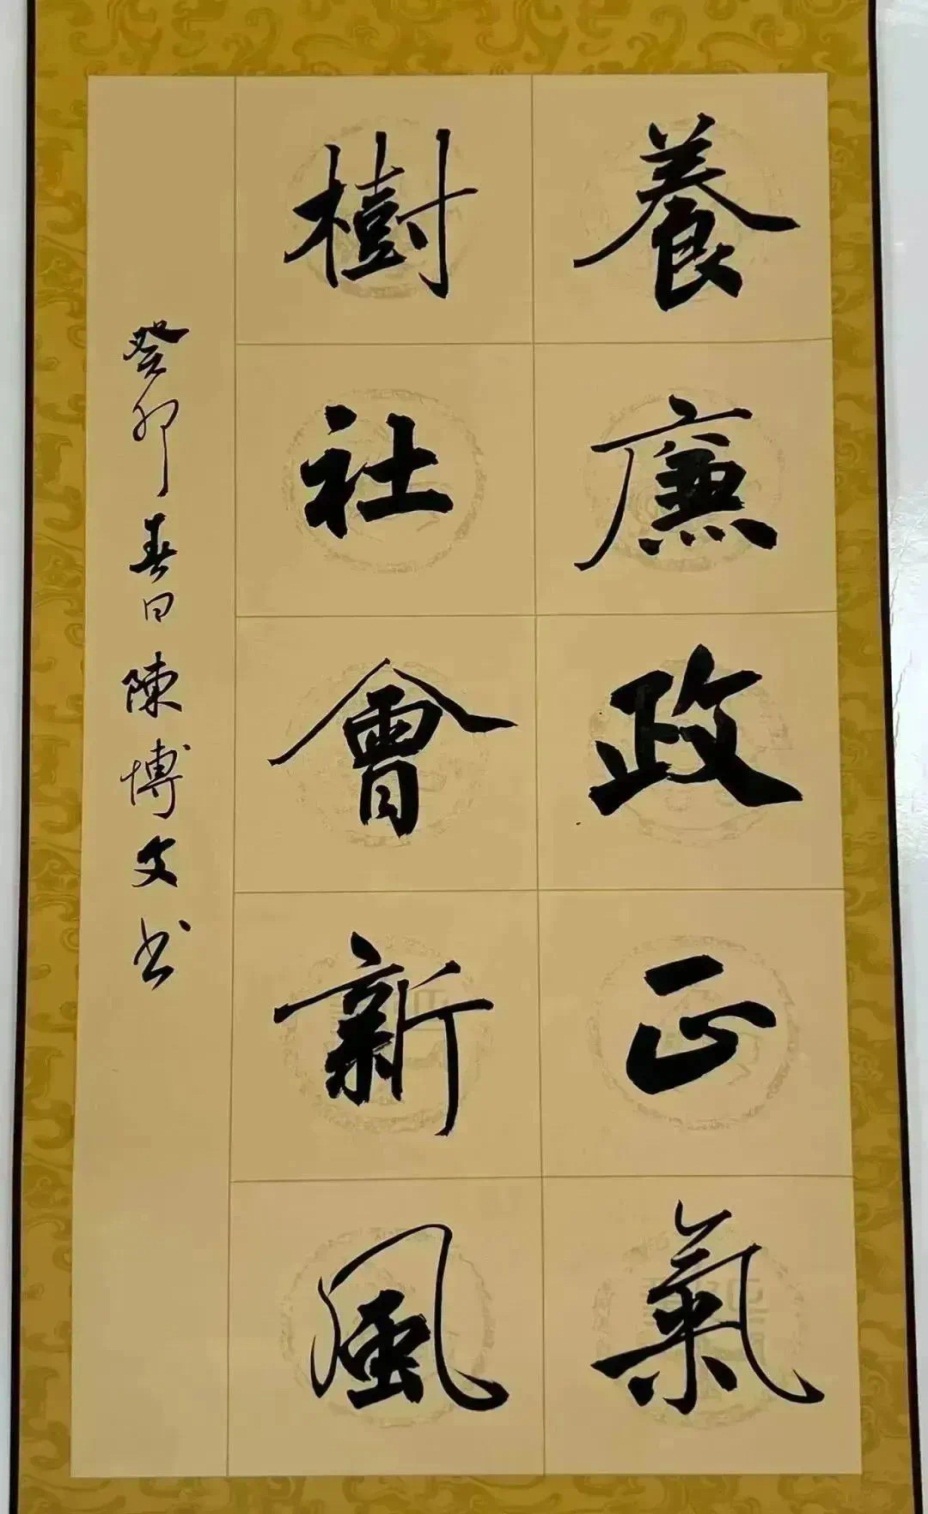 養廉政正氣
樹社會新風
癸卯春日陳博文书